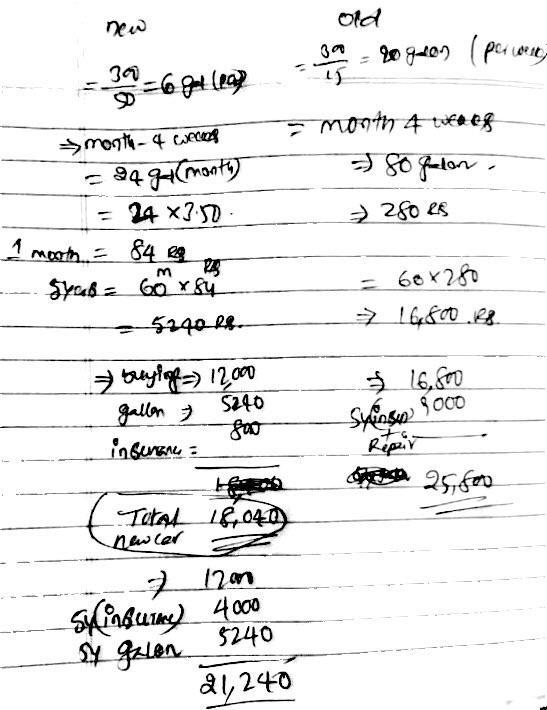 new old
= 300/50 = 6 gal = 300/15 = 20 galon (per week)
⇒ month - 4 weeks = month 4 weeks
= 24 gal (month) ⇒ 80 galon.
= 24 × 3.50. ⇒ 280 RS
1 month = 84 RS
5 years = 60 m × 84 RS = 60 × 280
= 5240 RS. ⇒ 16,800 . RS.
⇒ buying ⇒ 12,000 ⇒ 16,800
gallon ⇒ 5240 5y(insu) 9000
insurance = 800 + Repair
25,800
Total 18,040
new car
⇒ 12000
5y(insurance) 4000
5y galon 5240
21,240